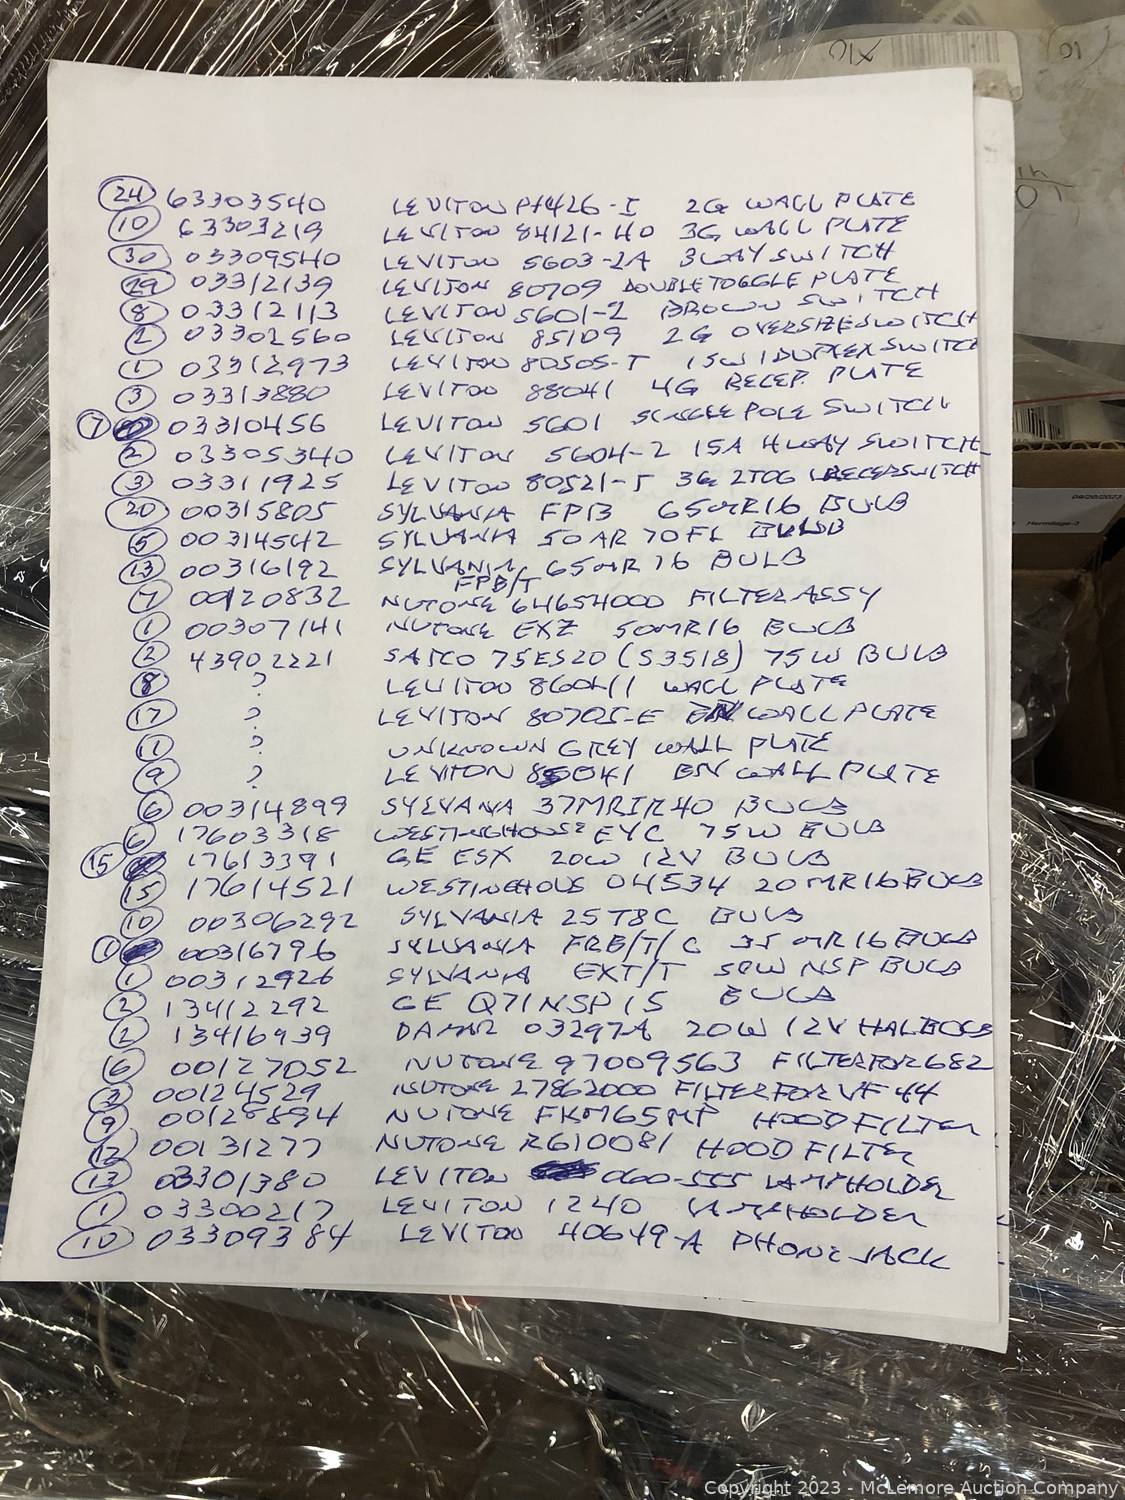 OIX
(01
09/20/2023
Hermitage-3
24 63303540 LEVITON PJ426-I 2G WALL PLATE
10 63303219 LEVITON 84121-40 3G WALL PLATE
30 03309540 LEVITON 5603-2A 3WAY SWITCH
29 03312139 LEVITON 80709 DOUBLE TOGGLE PLATE
8 03312113 LEVITON 5601-2 BROWN SWITCH
2 03302560 LEVITON 85109 2G OVERSIZE SWITCH
1 03312973 LEVITON 80505-T 1SW 1DUPLEX SWITCH
3 03313880 LEVITON 88041 4G RECEP. PLATE
7 03310456 LEVITON 5601 SINGLE POLE SWITCH
2 03305340 LEVITON 5604-2 15A 4WAY SWITCH
3 03311925 LEVITON 80521-T 3G 2TOG 1RECEP SWITCH
20 00315805 SYLVANIA FPB 65MR16 BULB
5 00314542 SYLVANIA 50AR70FL BULB
13 00316192 SYLVANIA 65MR16 BULB
FPB/T
7 00120832 NUTONE 64654000 FILTER ASSY
1 00307141 NUTONE EXZ 50MR16 BULB
2 43902221 SATCO 75ES20 (S3518) 75W BULB
8 ? LEVITON 86041 WALL PLATE
17 ? LEVITON 80705-E WALL PLATE
11 ? UNKNOWN GREY WALL PLATE
9 ? LEVITON 85041 BN WALL PLATE
6 00314899 SYLVANIA 37MRIR40 BULB
6 17603318 WESTINGHOUSE EYC 75W BULB
15 17613391 GE ESX 20W 12V BULB
15 17614521 WESTINGHOUS 04534 20MR16 BULB
10 00306292 SYLVANIA 25T8C BULB
1 00316796 SYLVANIA FRB/T/C 35MR16 BULB
1 00312926 SYLVANIA EXT/T 50W NSP BULB
2 13412292 GE Q71NSP15 BULB
2 13416939 DAMAR 03297A 20W 12V HALBULB
6 00127052 NUTONE 97009563 FILTER FOR 682
2 00124529 NUTONE 27862000 FILTER FOR VF44
9 00128894 NUTONE FKM65MP HOOD FILTER
12 00131277 NUTONE R610081 HOOD FILTER
13 03301380 LEVITON 060-555 LAMPHOLDER
1 03300217 LEVITON 1240 LAMPHOLDER
10 03309384 LEVITON 40649-A PHONE JACK
Copyright 2023 - McLemore Auction Company